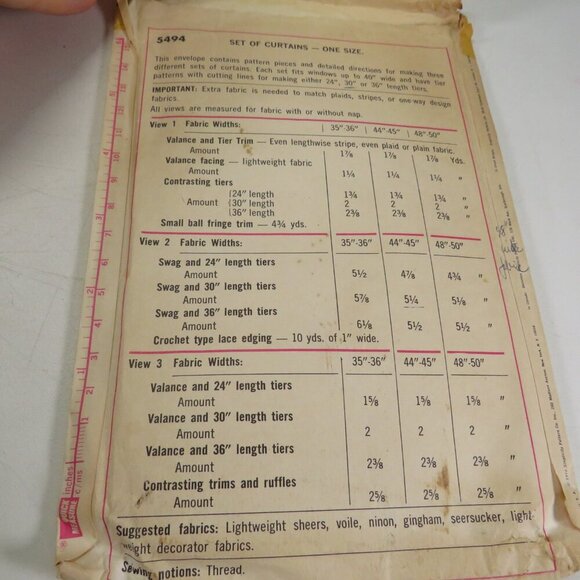 5494 SET OF CURTAINS — ONE SIZE.
This envelope contains pattern pieces and detailed directions for making three
different sets of curtains. Each set fits windows up to 40" wide and have tier
patterns with cutting lines for making either 24", 30" or 36" length tiers.
IMPORTANT: Extra fabric is needed to match plaids, stripes, or one-way design
fabrics.
All views are measured for fabric with or without nap.
View 1 Fabric Widths: 35"-36" 44"-45" 48"-50"
Valance and Tier Trim — Even lengthwise stripe, even plaid or plain fabric.
Amount 1⅞ 1⅞ 1⅞ Yds.
Valance facing — lightweight fabric
Amount 1¼ 1¼ 1¼ "
Contrasting tiers
(24" length 1¾ 1¾ 1¾ "
Amount (30" length 2 2 2 "
(36" length 2⅜ 2⅜ 2⅜ "
Small ball fringe trim — 4¾ yds.
View 2 Fabric Widths: 35"-36" 44"-45" 48"-50"
Swag and 24" length tiers
Amount 5½ 4⅞ 4¾ "
Swag and 30" length tiers
Amount 5⅞ 5¼ 5⅛ "
Swag and 36" length tiers
Amount 6⅛ 5½ 5½ "
Crochet type lace edging — 10 yds. of 1" wide.
View 3 Fabric Widths: 35"-36" 44"-45" 48"-50"
Valance and 24" length tiers
Amount 1⅝ 1⅝ 1⅝ "
Valance and 30" length tiers
Amount 2 2 2 "
Valance and 36" length tiers
Amount 2⅜ 2⅜ 2⅜ "
Contrasting trims and ruffles
Amount 2⅝ 2⅝ 2⅝ "
Suggested fabrics: Lightweight sheers, voile, ninon, gingham, seersucker, light
weight decorator fabrics.
Sewing notions: Thread.
QUICK MEASURE
inches
c/ms